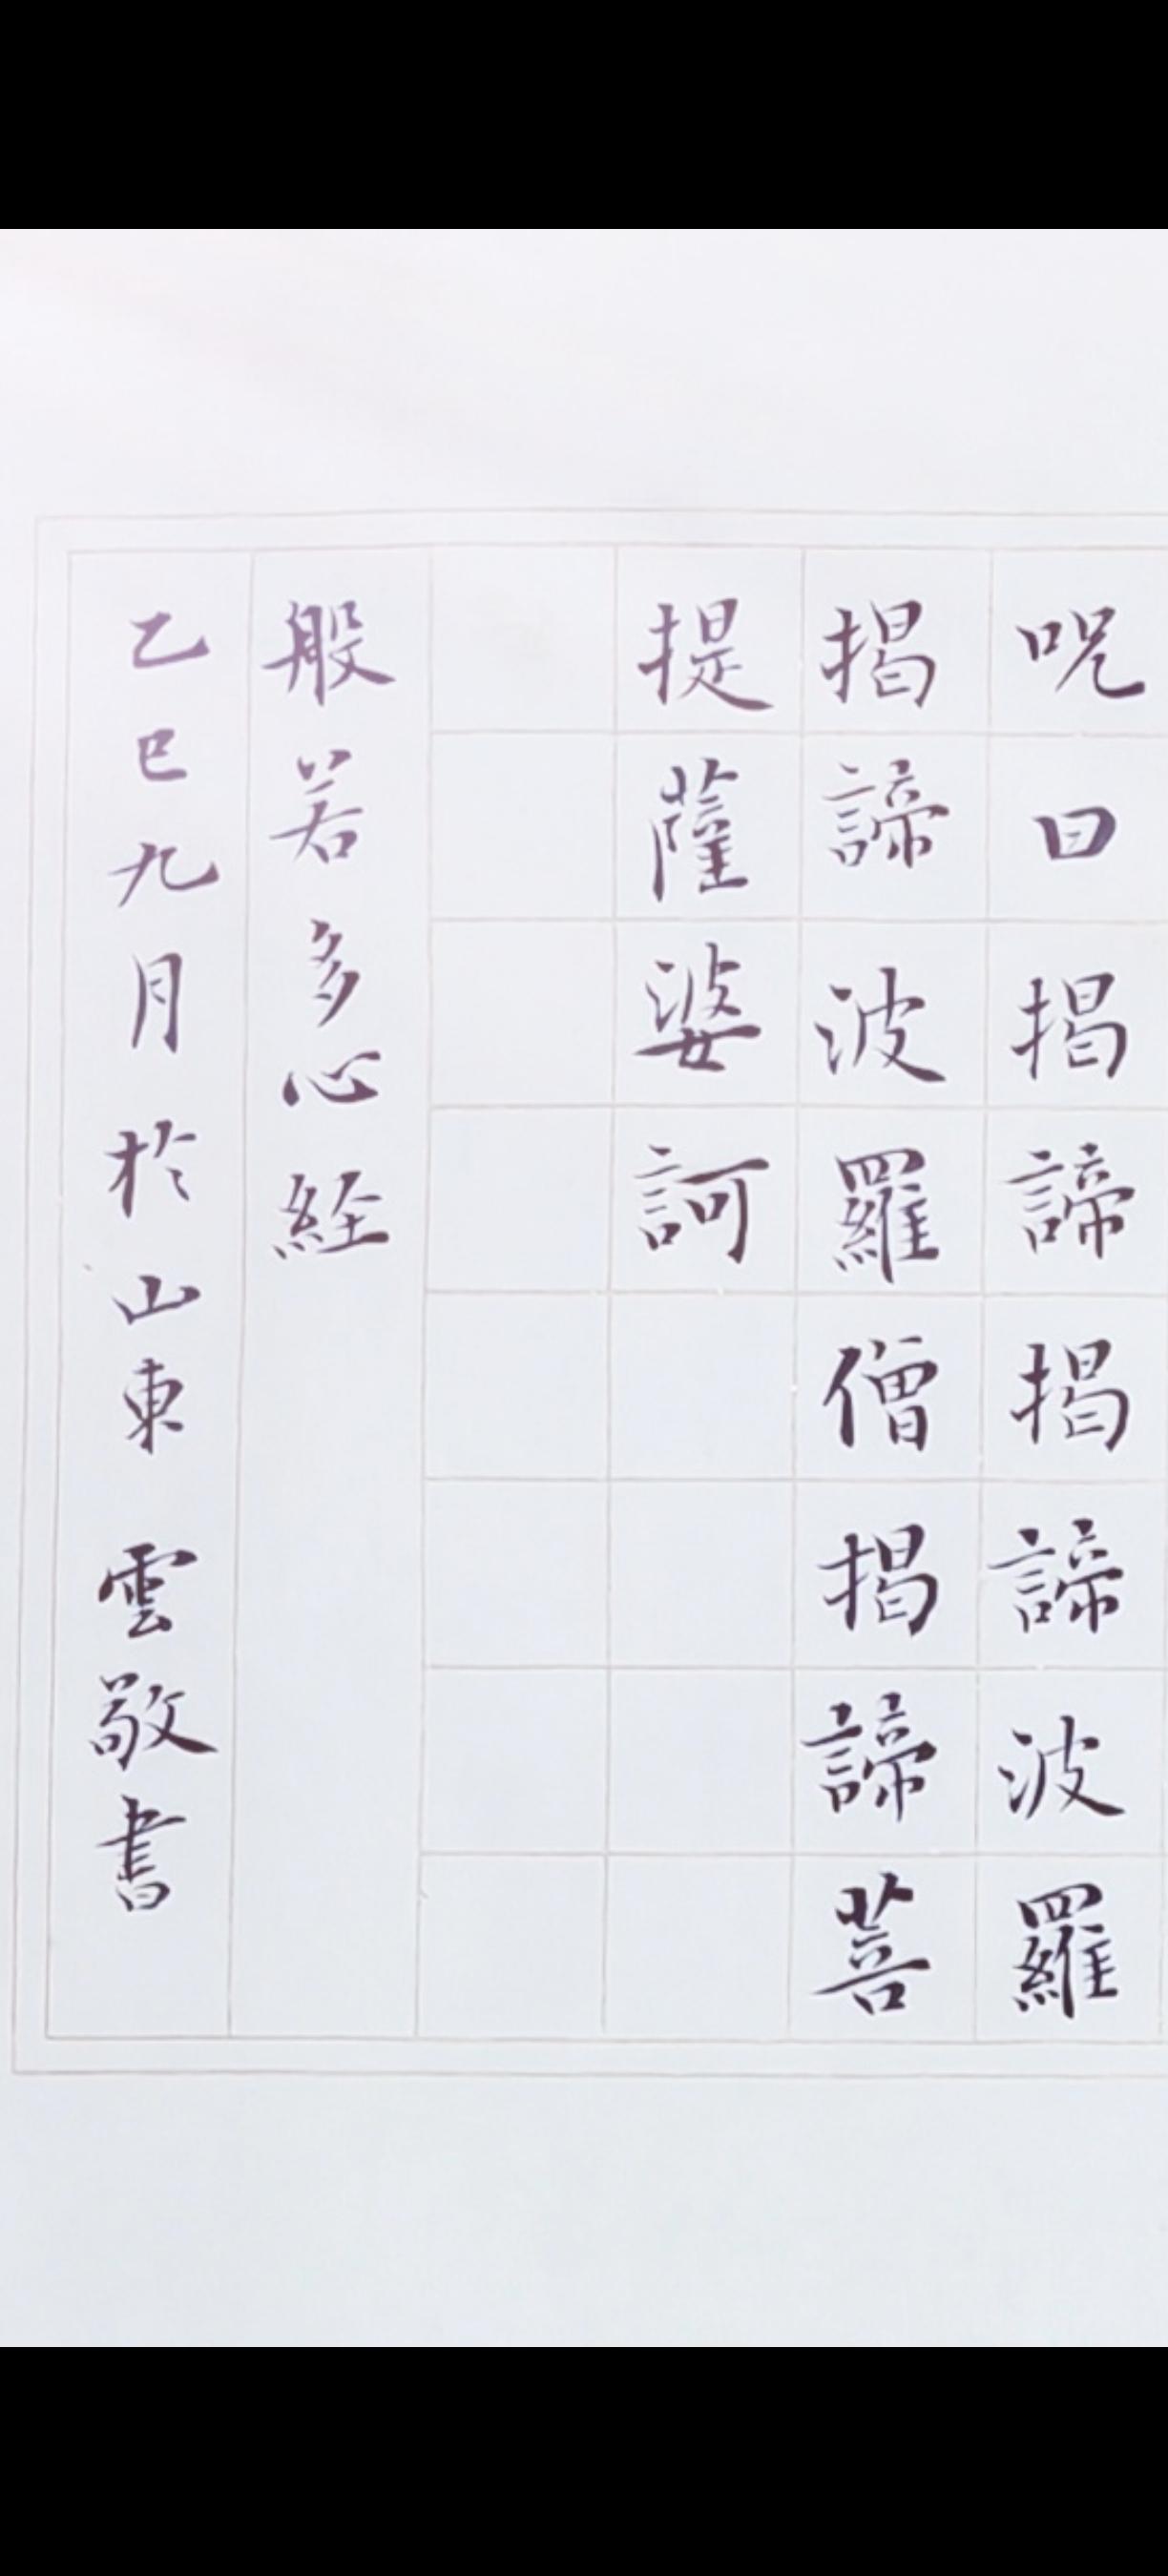 呪曰揭諦揭諦波羅
揭諦波羅僧揭諦菩
提薩婆訶
般若多心経
乙巳九月於山東雲敬書